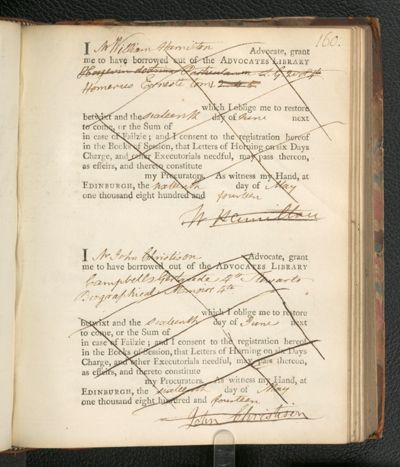 160.
I Mr William Hamilton Advocate, grant
me to have borrowed out of the ADVOCATES LIBRARY
Homerus Ernesti
which I oblige me to restore
betwixt and the sixteenth day of June next
to come, or the Sum of
in case of Failzie; and I consent to the registration hereof
in the Books of Session, that Letters of Horning on six Days
Charge, and other Executorials needful, may pass thereon,
as effeirs, and thereto constitute
my Procurators. As witness my Hand, at
EDINBURGH, the sixteenth day of May
one thousand eight hundred and fourteen
W Hamilton
I Mr John Christison Advocate, grant
me to have borrowed out of the ADVOCATES LIBRARY
Campbells 4to Stewarts
Biographical Memoirs 4to
which I oblige me to restore
betwixt and the sixteenth day of June next
to come, or the Sum of
in case of Failzie; and I consent to the registration hereof
in the Books of Session, that Letters of Horning on six Days
Charge, and other Executorials needful, may pass thereon,
as effeirs, and thereto constitute
my Procurators. As witness my Hand, at
EDINBURGH, the sixteenth day of May
one thousand eight hundred and fourteen
John Christison